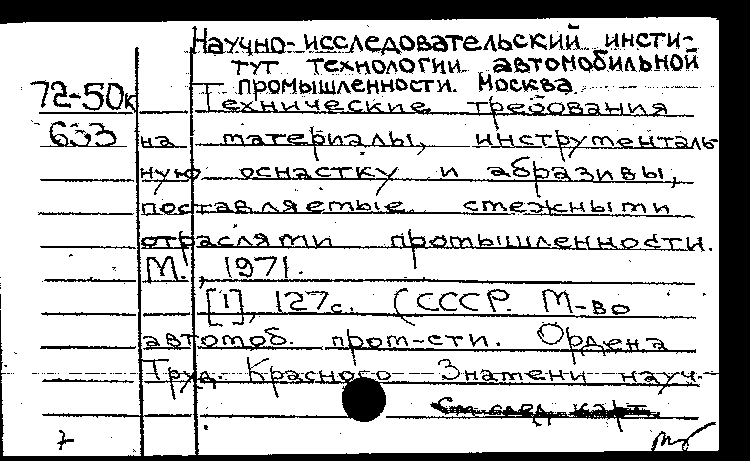 Научно-исследовательский инсти-
тут технологии автомобильной
промышленности. Москва
72-50к Технические требования
633 на материалы, инструменталь
ную оснастку и абразивы,
поставляемые смежными
отраслями промышленности.
М., 1971.
[1], 127с. (СССР. М-во
автомоб. пром-сти. Ордена
Труд. Красного Знамени науч.-
См. след. карт.